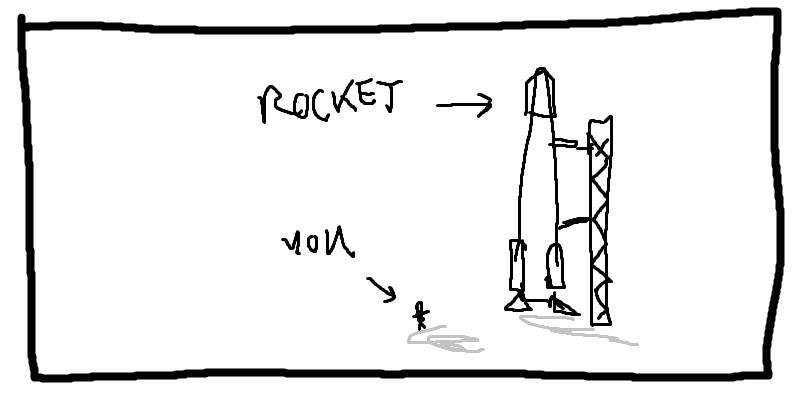 ROCKET
YOU